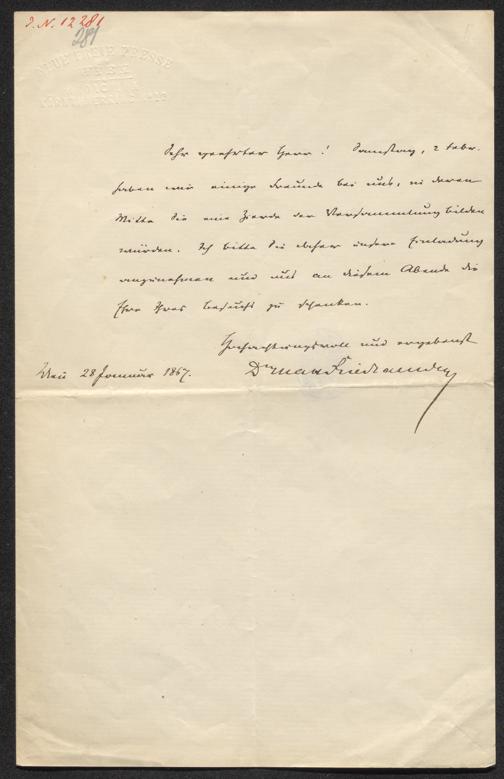 J. N. 12281
281
NEUE FREIE PRESSE
WIEN
Sehr geehrter Herr! Samstag, 2 Febr.
haben wir einige Freunde bei uns, in deren
Mitte Sie eine Zierde der Versammlung bilden
würden. Ich bitte Sie daher unsere Einladung
anzunehmen und uns an diesem Abende die
Ehre Ihres Besuchs zu schenken.
Hochachtungsvoll und ergebenst
Wien 28 Januar 1867. Dr Max Friedlaender